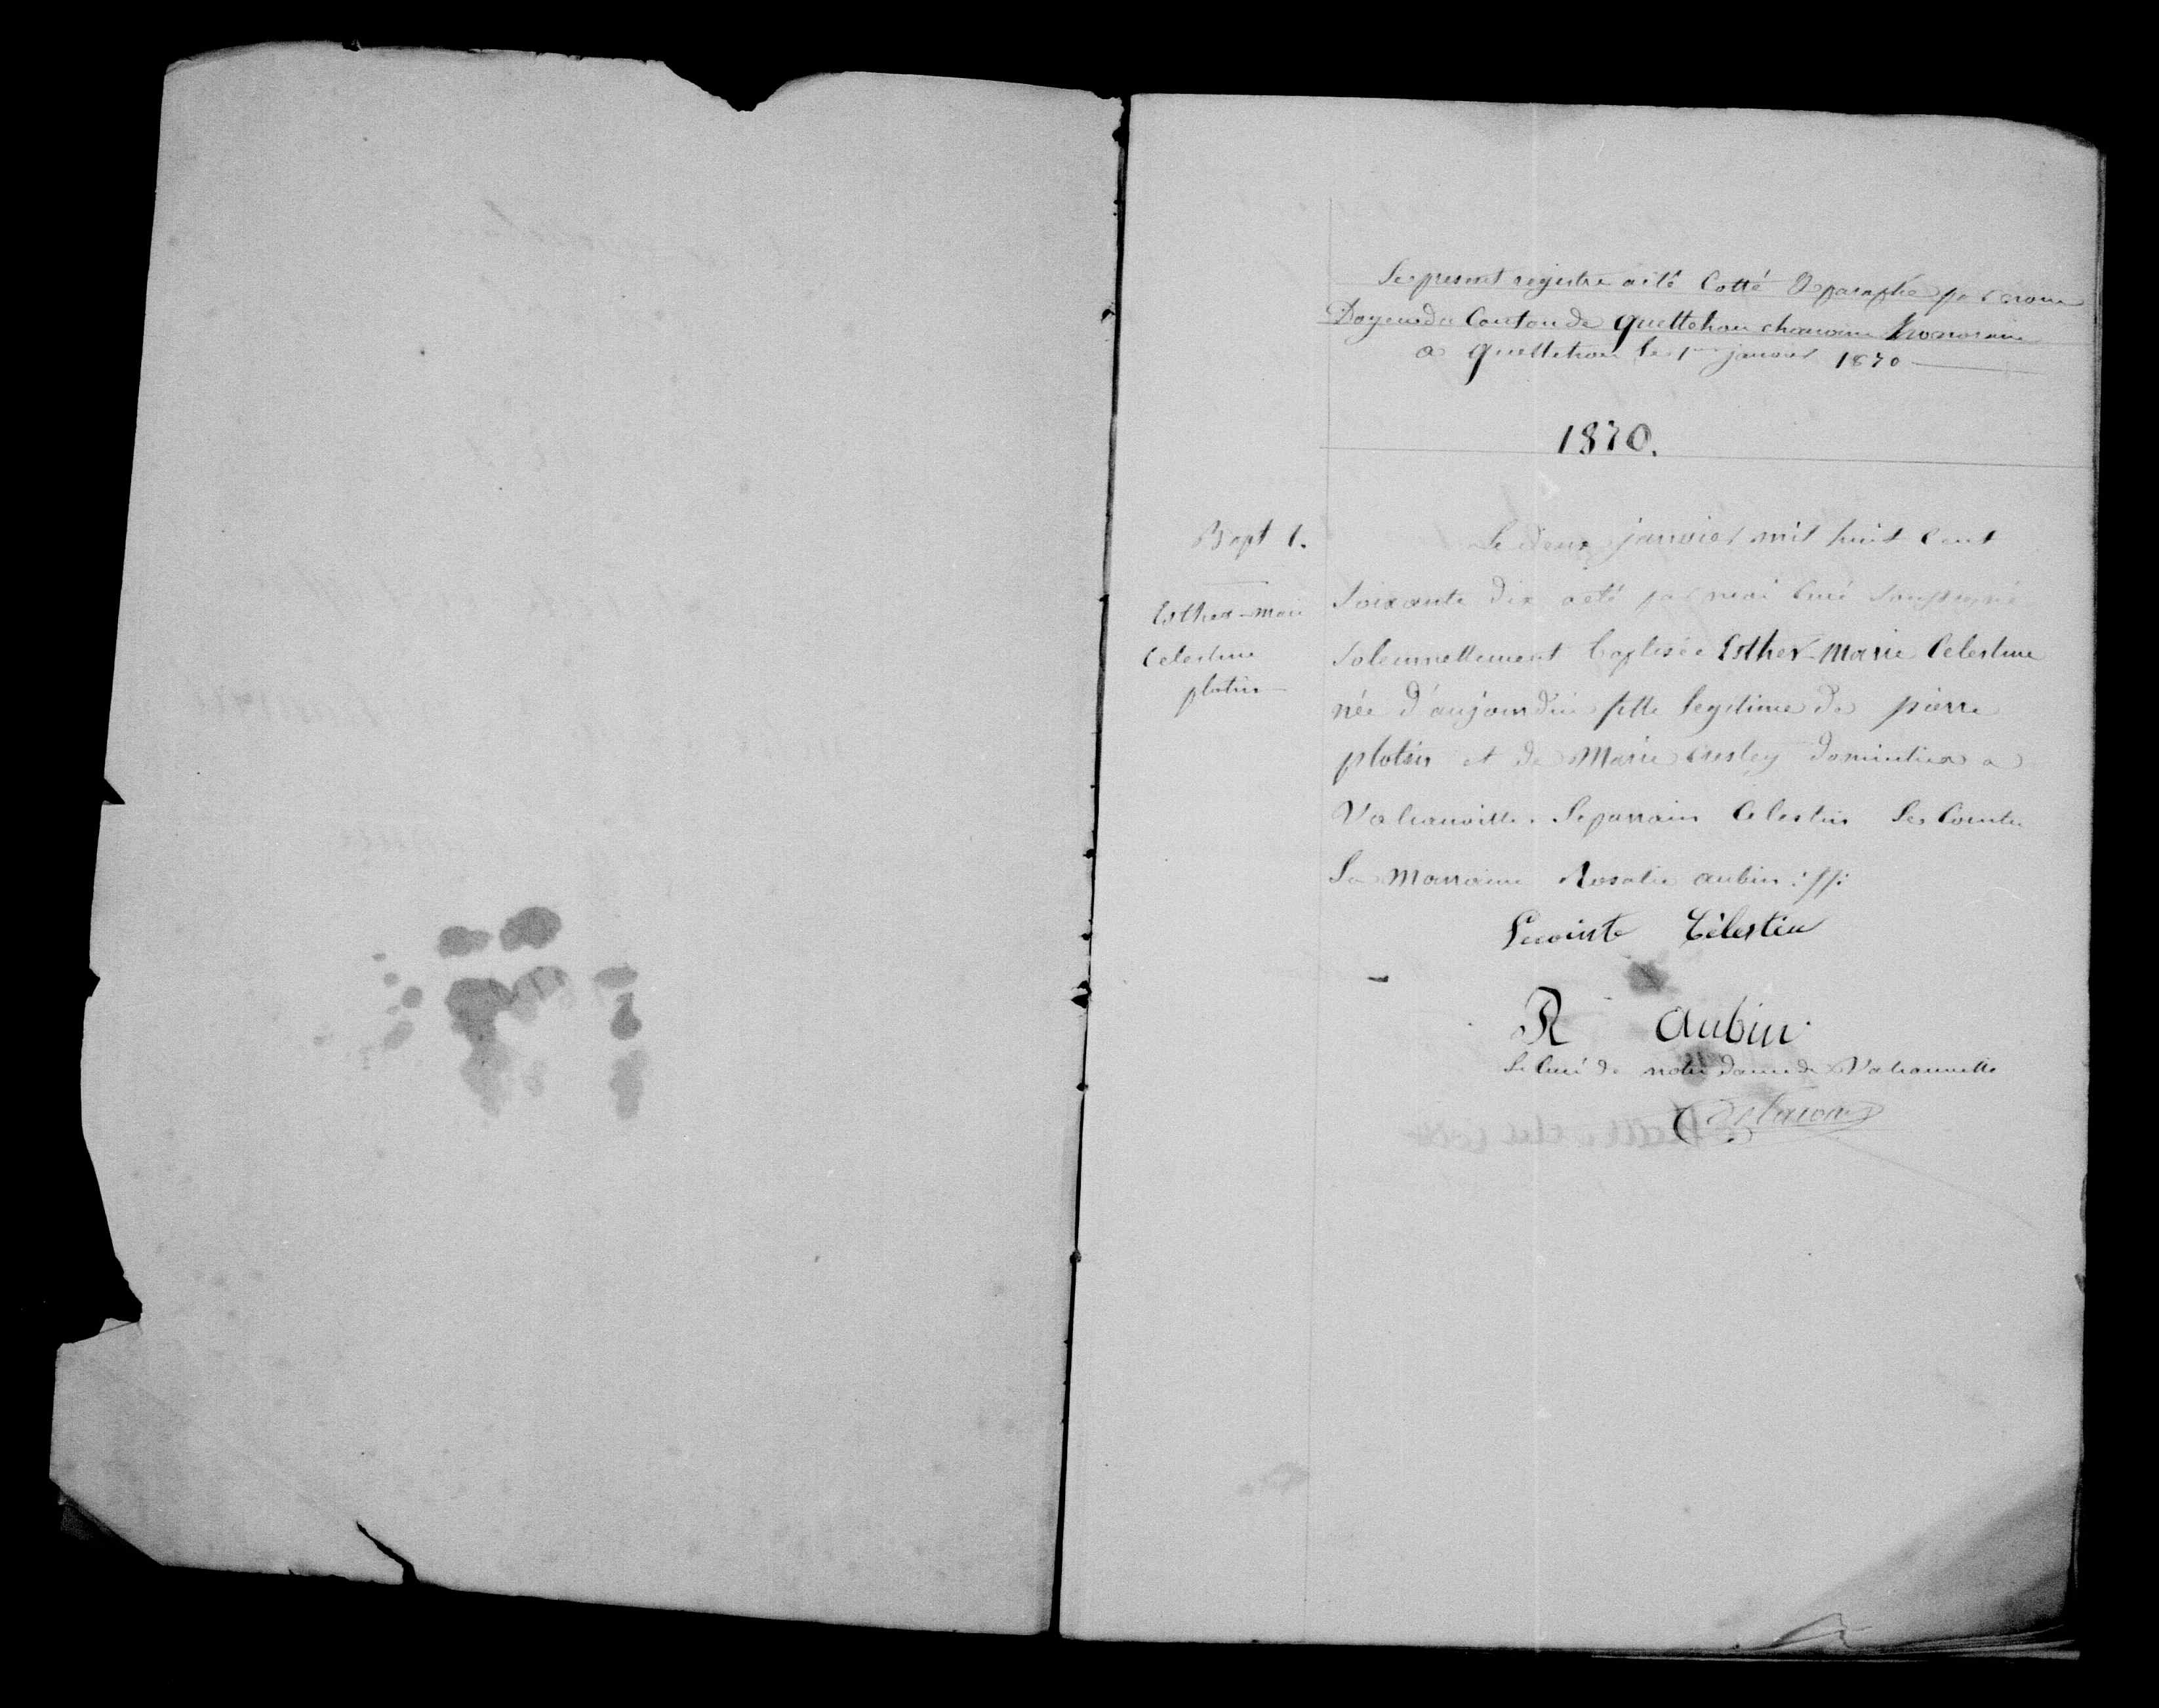 Le present registre a été Cotté & paraphé par nous
Doyen du Canton de quettehou chanoine honoraire
a quettehou le 1er janvier 1870
1870.
Bapt 1.
Esther-marie
Celestine
plotin
Le deux janvier mil huit Cent
Soixante dix a eté par moi Curé Soussigné
Solennellement baptisée Esther-Marie Celestine
née d'aujourd'ui fille legitime de pierre
plotin et de Marie domiciliés a
Valcanville. Le parrain Celestin Le Cointe
La Marraine Rosalie aubin :ff:
Lecointe Célestin
R aubin
Le Curé de notre Dame de Valcanville